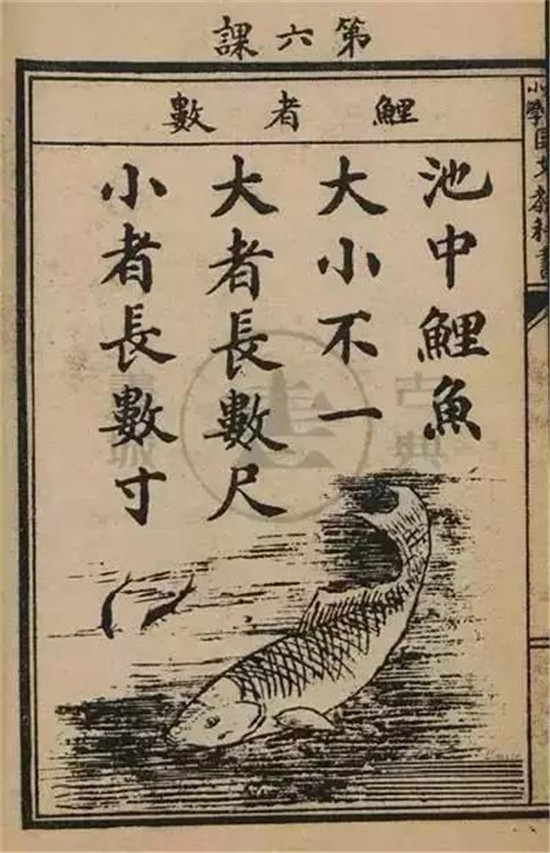 第六課
鯉者數
池中鯉魚
大小不一
大者長數尺
小者長數寸
小學國文教科書